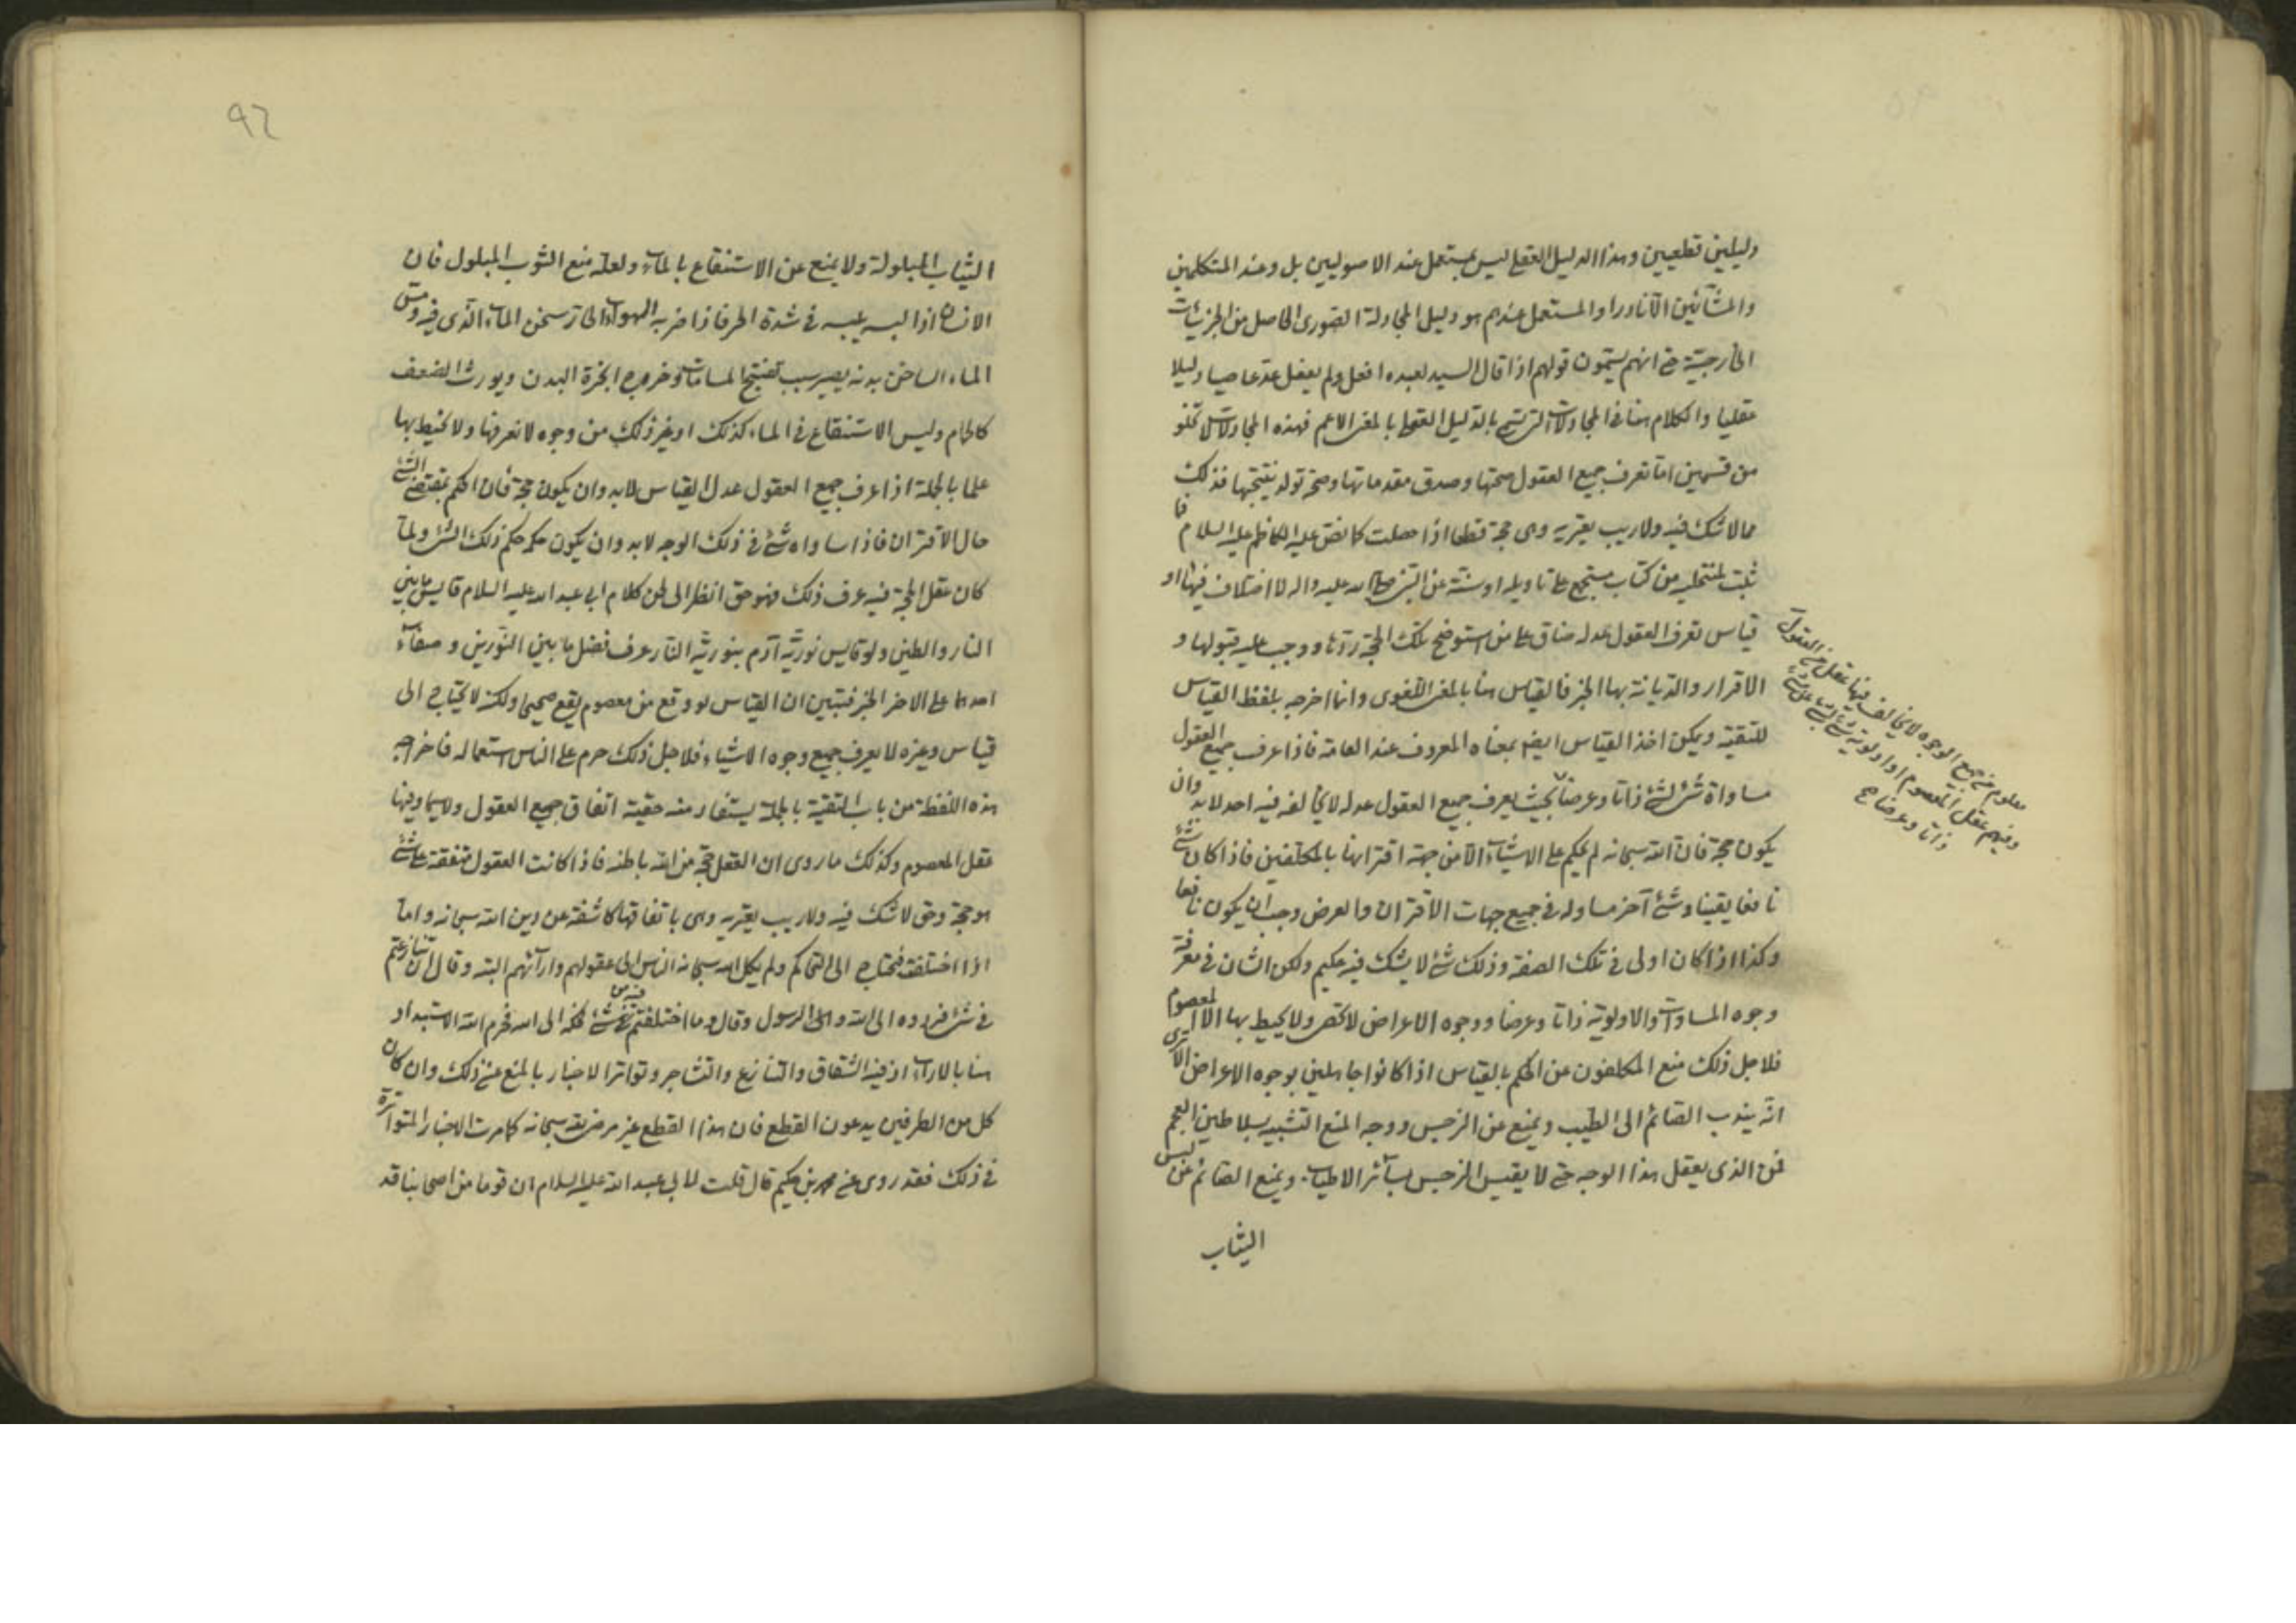 دليلين قطعيين وهذا الدليل العقلي ليس بمستعمل عند الاصوليين بل وعند المتكلمين
والمشائين الا نادرا والمستعمل عندهم هو دليل المجادلة الصورى الحاصل من الجزئيات
الخارجية حتى انهم يسمون قولهم اذا قال السيد لعبده افعل ولم يفعل عد عاصيا دليلا
عقليا والكلام هنا في المجادلات التى تسمى بالدليل العقلى بالمعنى الاعم فهذه المجادلات لا تخلو
من قسمين اما تعرف جميع العقول صحتها وصدق مقدماتها وصحة تولد نتيجتها فذلك
مما لا شك فيه ولا ريب يعتريه وهى حجة قطعا اذا حصلت كما نص عليه الكاظم عليه السلام فما
ثبت لمنتحليه من كتاب مستجمع على تاويله او سنة عن النبى صلى الله عليه واله لا اختلاف فيها او
قياس تعرف العقول عدله ضاق على من استوضح تلك الحجة ردها ووجب عليه قبولها و
الاقرار والديانة بها الخبر فالقياس هنا بالمعنى اللغوى وانما اخرجه بلفظ القياس
للتقية ويمكن اخذ القياس ايضا بمعناه المعروف عند العامة فاذا عرف جميع العقول
مساواة شئ لشئ ذاتا وعرضا بحيث يعرف جميع العقول عدله لا يخالفه فيه احد لابد وان
يكون حجة فان الله سبحانه لم يحكم على الاشياء الا من جهة اقترانها بالمكلفين فاذا كان شئ
نافعا يقينا وشئ آخر مساو له في جميع جهات الاقتران والعرض وجب ان يكون نافعا
وكذا اذا كان اولى في تلك الصفة وذلك شئ لا يشك فيه حكيم ولكن الشان في معرفة
وجوه المساوات والاولوية ذاتا وعرضا ووجوه الاعراض لا تحصى ولا يحيط بها الا المعصوم
فلاجل ذلك منع المكلفون عن الحكم بالقياس اذا كانوا جاهلين بوجوه الاعراض الا ترى
انه يندب الصائم الى الطيب ويمنع عن النرجس ووجه المنع التشبيه بسلاطين العجم
فمن الذى يعقل هذا الوجه حتى لا يقيس النرجس بسائر الاطياب ويمنع الصائم عن لبس
الثياب
معلوم من جميع الوجوه لا يخالف فيها عقل من العقول
وفيهم عقل المعصوم او اولوية شئ
ذاتا وعرضا صح
الثياب المبلولة ولا يمنع عن الاستنقاع بالماء ولعله منع الثوب المبلول فان
الانسان اذا لبسه في شدة الحر فاذا ضربه الهواء الحار تسخن الماء الذى فيه ومس
الماء الساخن بدنه يصير سبب تفتيح المسامات وخروج ابخرة البدن ويورث الضعف
كالحمام وليس الاستنقاع في الماء كذلك او غير ذلك من وجوه لا نعرفها ولا نحيط بها
علما بالجملة اذا عرف جميع العقول عدل القياس لابد وان يكون حجة فان الحكم بمقتضى الشئ
حال الاقتران فاذا ساواه شئ في ذلك الوجه لابد وان يكون حكمه حكم ذلك الشئ ولما
كان عقل الحجة فيه عرف ذلك فهو حق انظر الى لحن كلام ابي عبد الله عليه السلام قايس ما بين
النار والطين ولو قايس نورية آدم بنورية النار عرف فضل ما بين النورين وصفاء
احدهما على الاخر الخبر فتبين ان القياس لو وقع من معصوم يقع صحيحا ولكنه لا يحتاج الى
قياس وغيره لا يعرف جميع وجوه الاشياء فلاجل ذلك حرم على الناس استعماله فاخراجه
هذه اللفظة من باب التقية بالجملة يستفاد منه حقية اتفاق جميع العقول ولا سيما وفيها
عقل المعصوم وكذلك ما روى ان العقل حجة من الله باطنه فاذا كانت العقول متفقة على شئ
هو حجة وحق لا شك فيه ولا ريب يعتريه وهى باتفاقها كاشفة عن دين الله سبحانه واما
اذا اختلفت فتحتاج الى التحاكم ولم يكل الله سبحانه الناس الى عقولهم وارآئهم البتة وقال ان تنازعتم
في شئ فردوه الى الله والى الرسول وقال وما اختلفتم فيه من شئ فحكمه الى الله فحرم الله الاستبداد
هنا بالاراء اذ فيه الشقاق والتنازع والتشاجر وتواتر الاخبار بالمنع عن ذلك وان كان
كل من الطرفين يدعون القطع فان هذا القطع غير مرضى لله سبحانه كما مرت الاخبار المتواترة
في ذلك فقد روى عن محمد بن حكيم قال قلت لابي عبد الله عليه السلام ان قوما من اصحابنا قد